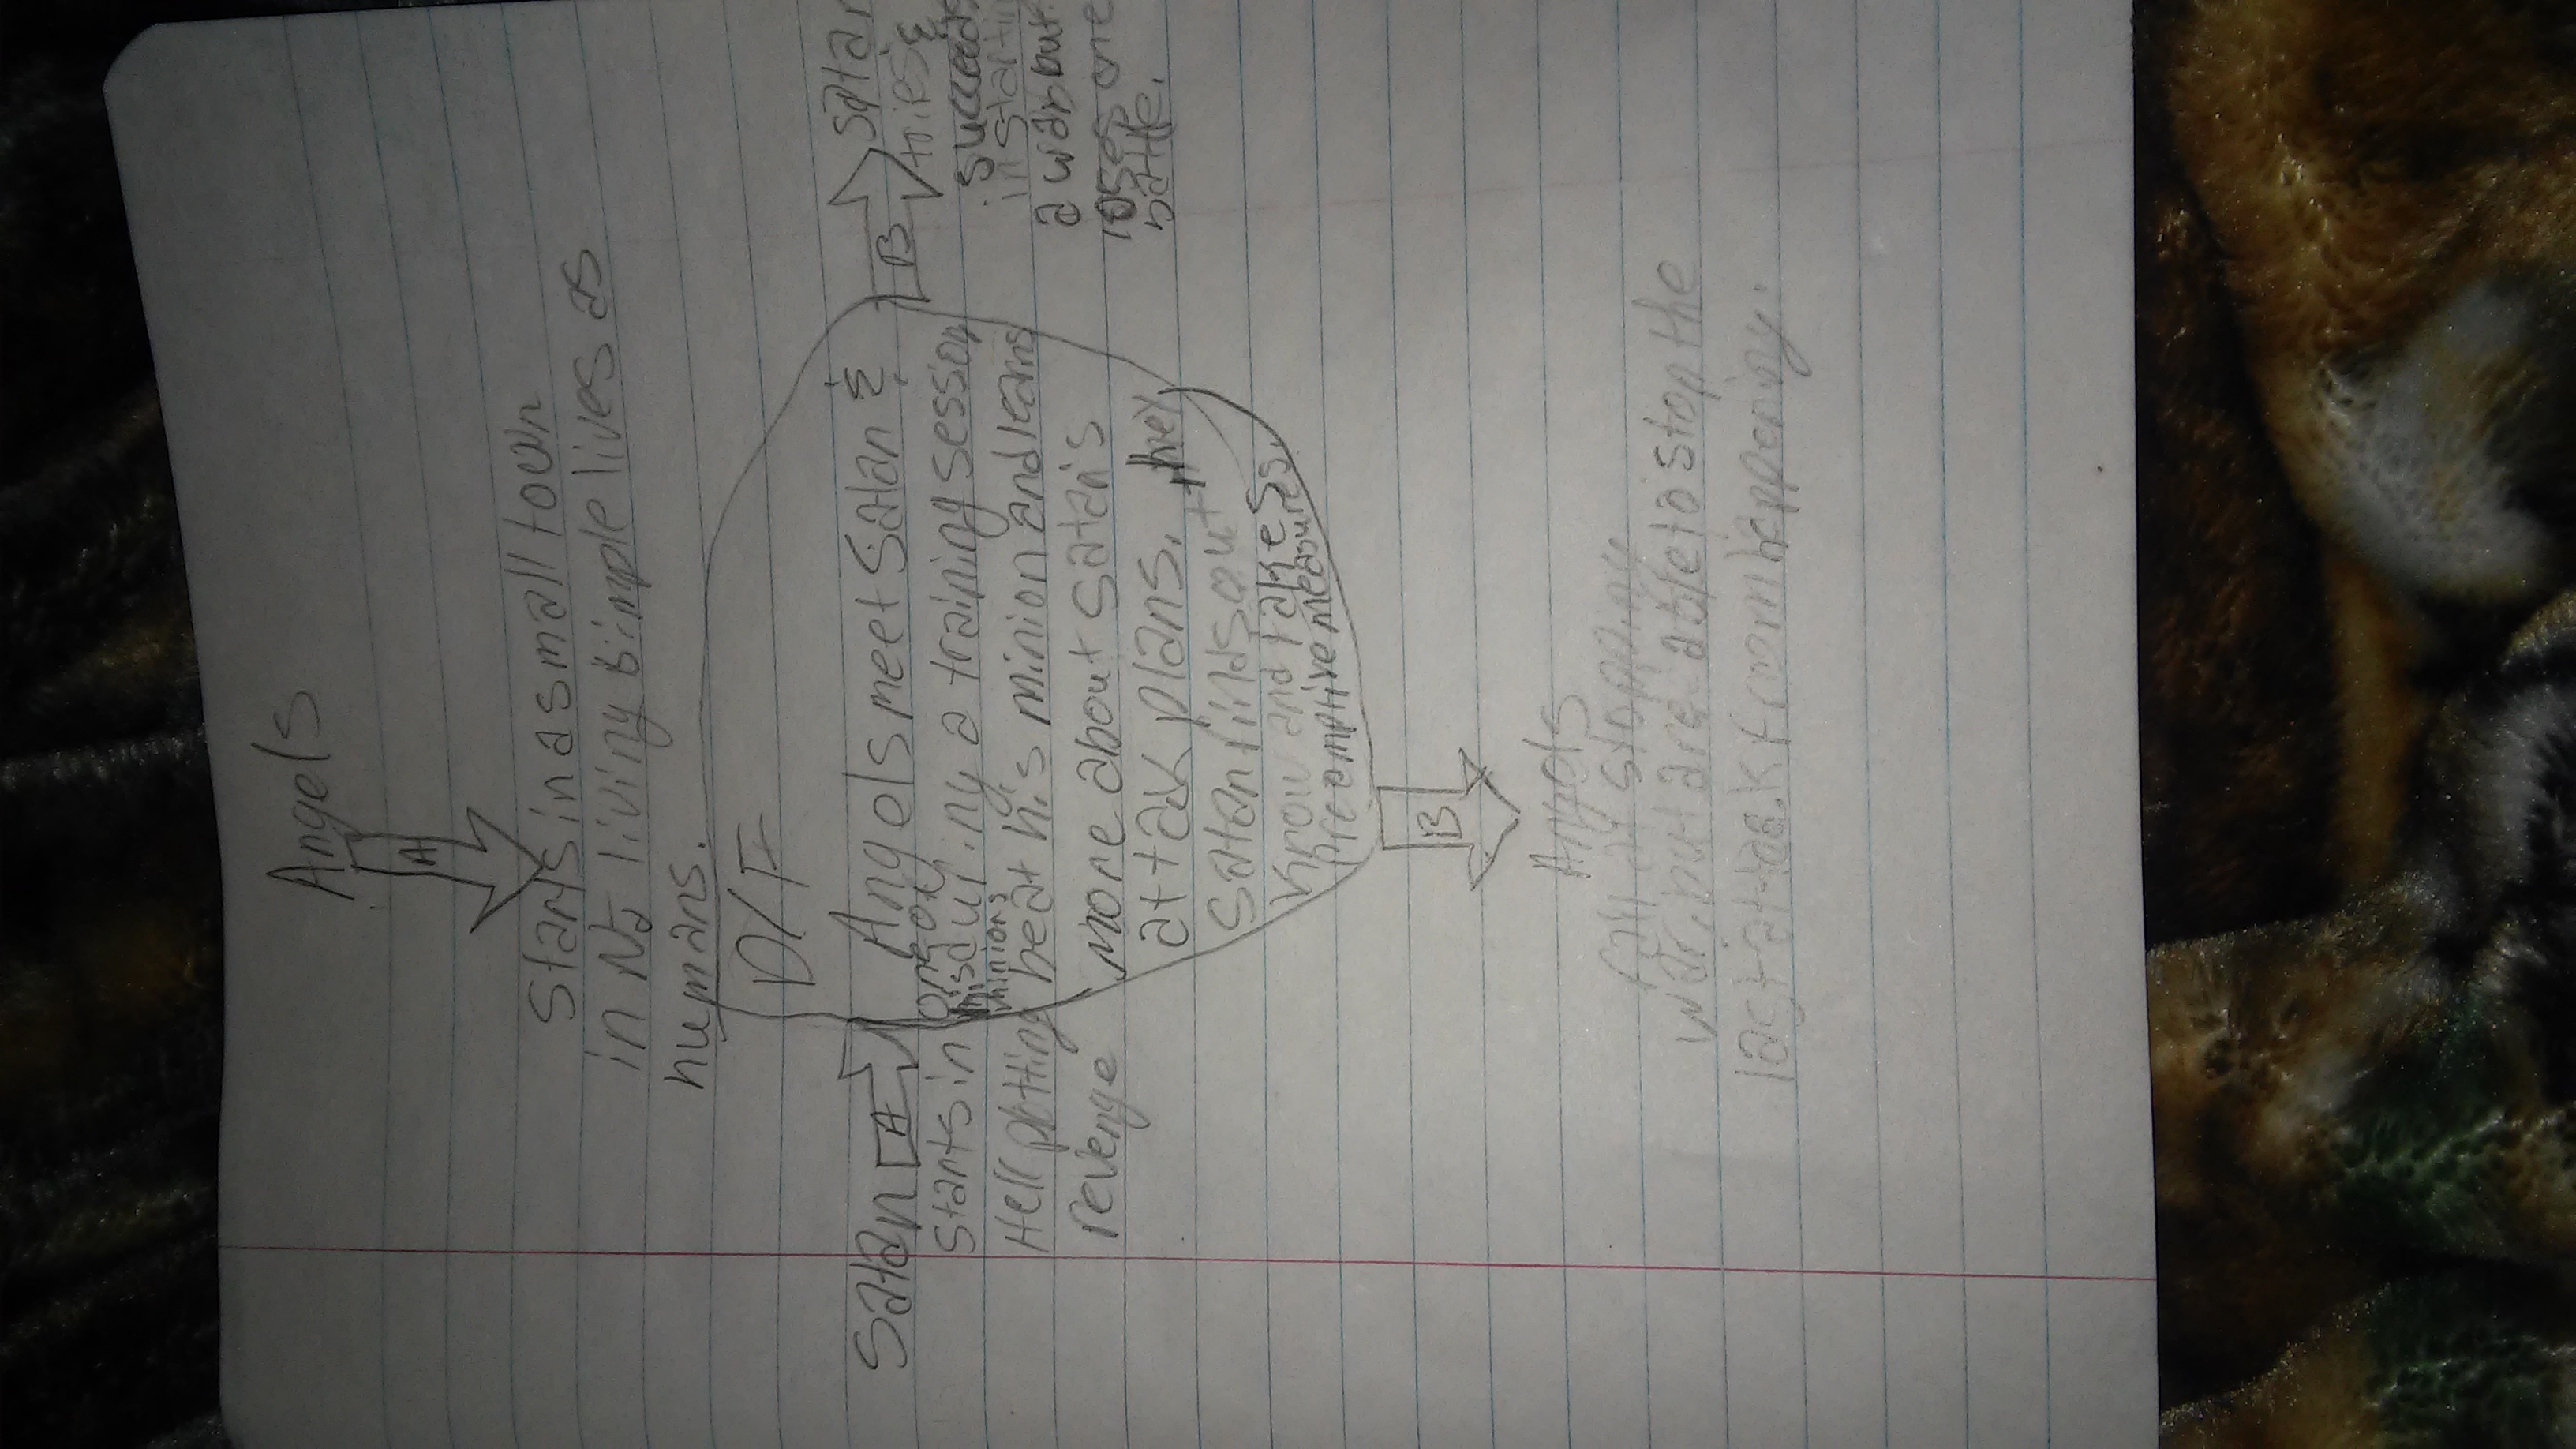 Angels
A
Starts in a small town
in NJ living simple lives as
humans.
D/F
Satan
A
Starts in
Hell plotting
revenge
Angels meet Satan &
one of
his during a training session
minions
beat his minion and learns
more about Satan's
attak plans. they
Satan finds out
know and takes
preemptive measures.
B
Satan
tries &
succeeds
in starting
a war but
loses one
battle.
B
Angels
fail at stopping
war, but are able to stop the
last attack from happening.